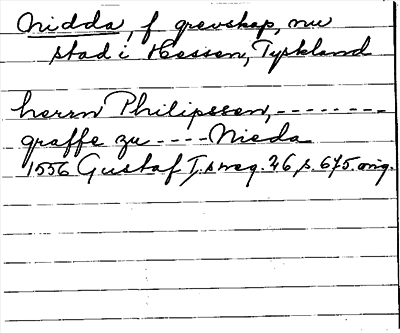 Nidda, f grevskap, nu
stad i Hessen, Tyskland
herrn Philipssen, --------
graffe zu ---- Nieda
1556 Gustaf I:s reg. 26, s. 675. orig.